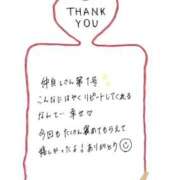 THANK
YOU
仲良しさん第1号
こんなにはやくリピートしてくれる
なんて… 幸せ♡
今回もたくさん褒めてもらえて
嬉しかったよ！ありがとう